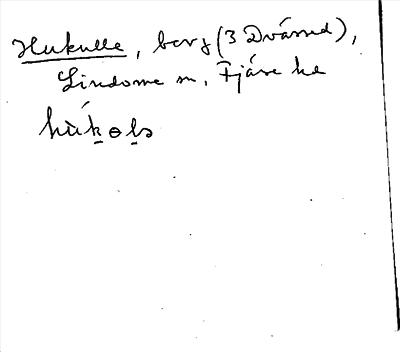 Hukulle, berg (3 Dvärred),
Lindome sn, Fjäre hd
hùkɵlə